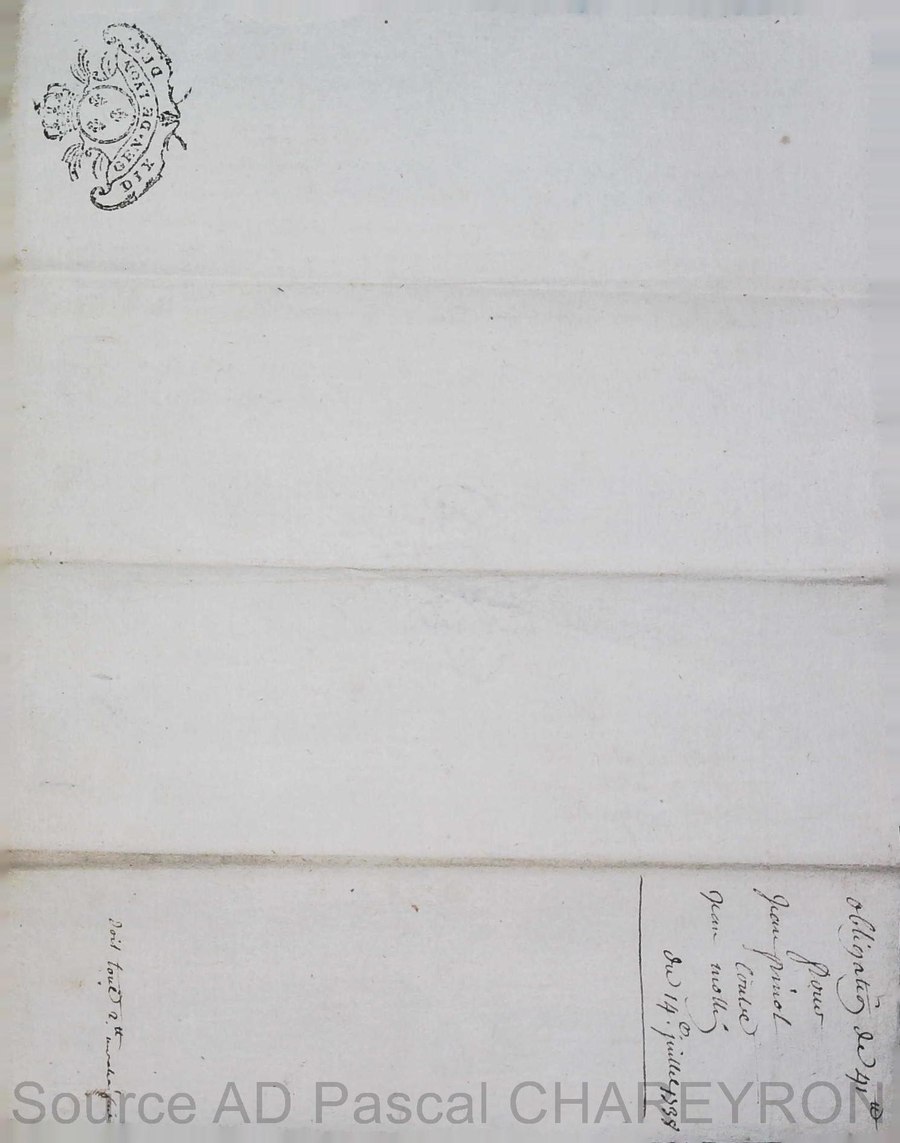 GEN. DE LYON
DIX DEN.
obligation de 41 tt
pour
Jean
contre
Jean
du 14e. juillet 1738
doit tout 2 tt
Source AD Pascal CHAPEYRON